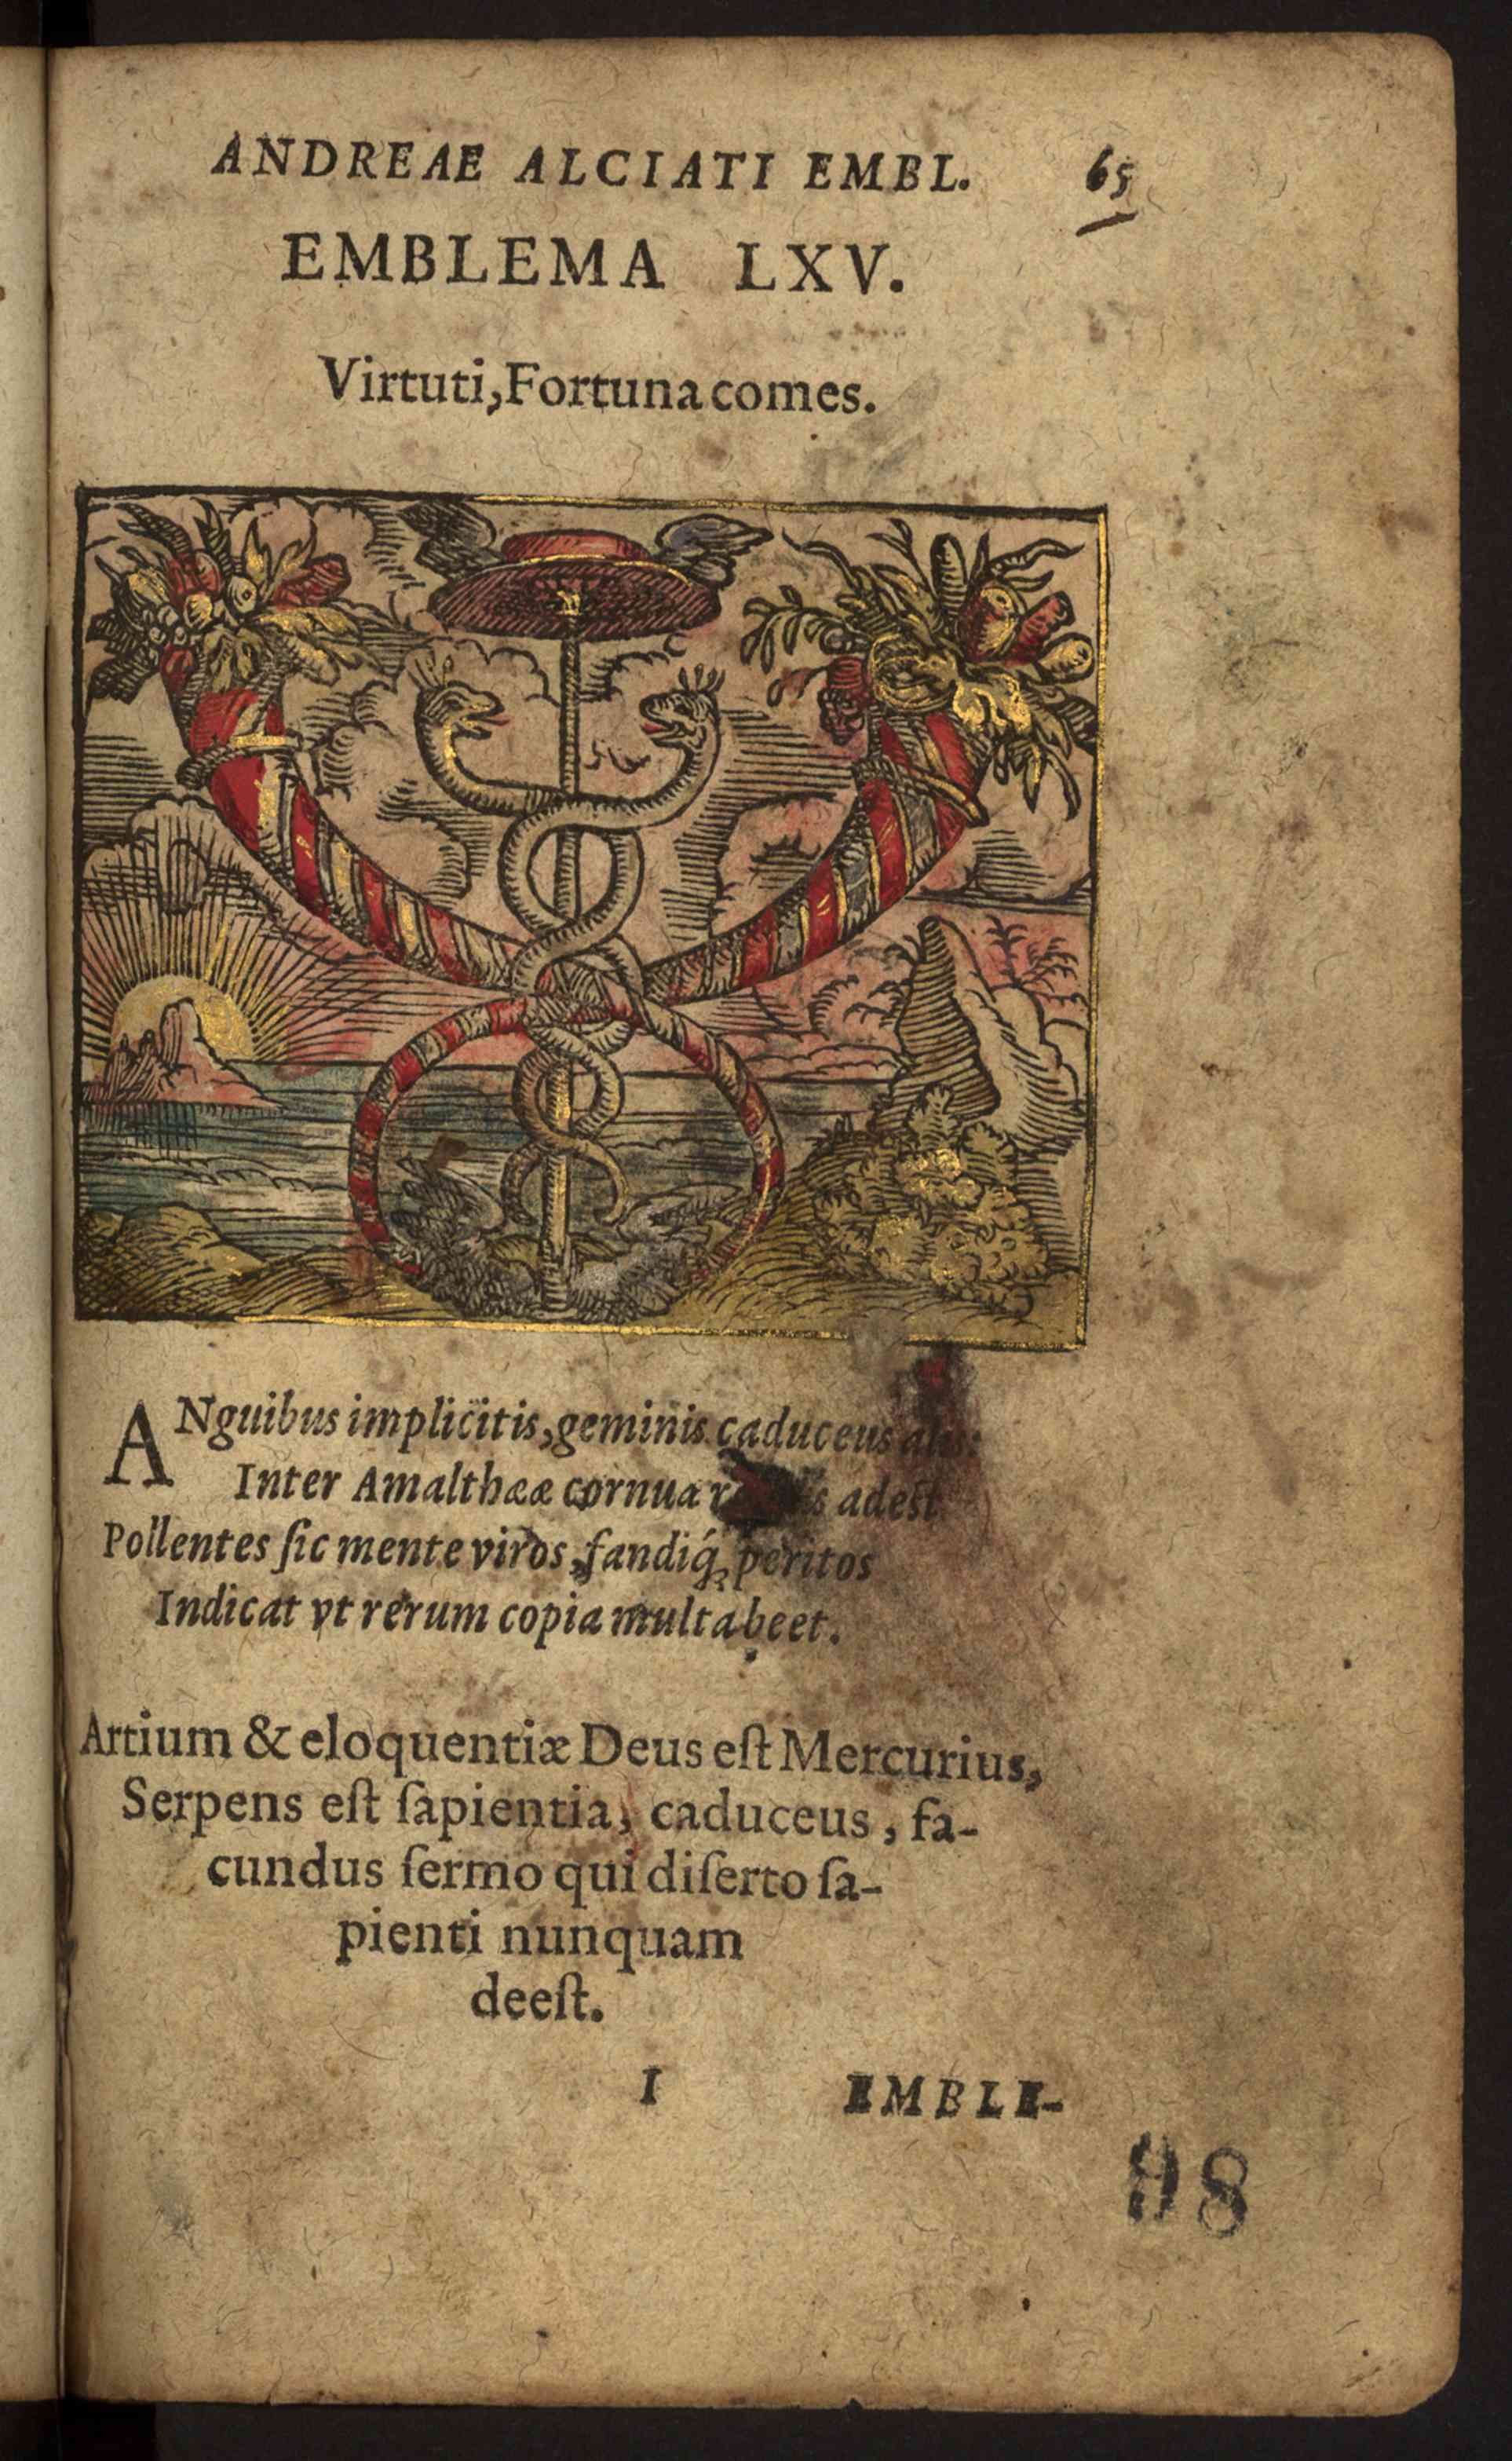 ANDREAE ALCIATI EMBL. 65
EMBLEMA LXV.
Virtuti, Fortuna comes.
ANguibus implicitis, geminis caduceus
Inter Amalthææ cornua adest
Pollentes ſic mente viros, fandiq́; peritos
Indicat vt rerum copia multa beet.
Artium & eloquentiæ Deus eſt Mercurius,
Serpens eſt ſapientia, caduceus, fa-
cundus ſermo qui diſerto ſa-
pienti nunquam
deeſt.
I EMBLE-
98